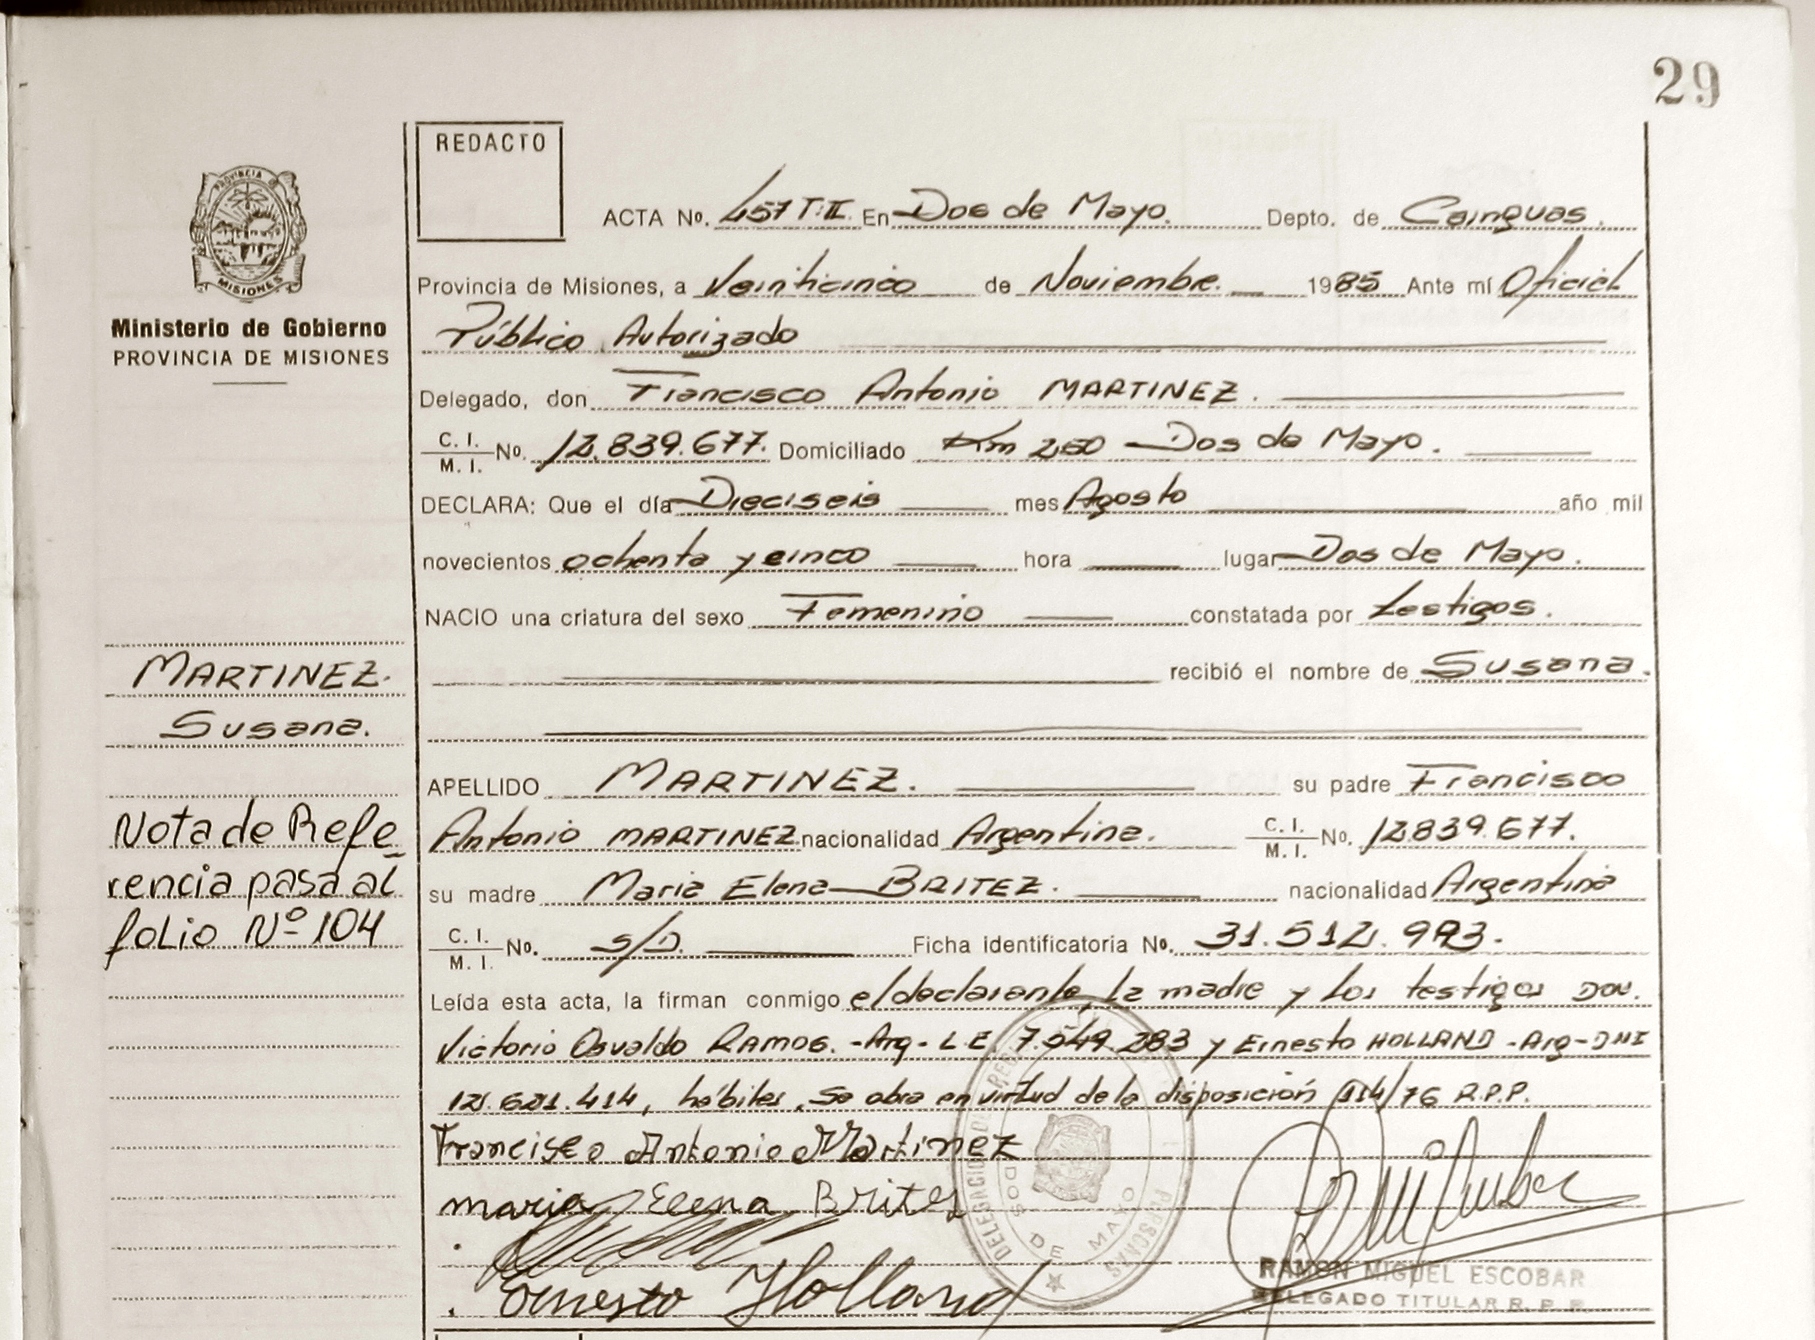 29
REDACTO
PROVINCIA DE
MISIONES
Ministerio de Gobierno
PROVINCIA DE MISIONES
ACTA No. 457 T:II. En Dos de Mayo. Depto. de Cainguas.
Provincia de Misiones, a Veinticinco de Noviembre. 1985 Ante mí Oficial
Público Autorizado
Delegado, don Francisco Antonio MARTINEZ.
C. I. / M. I. No. 12.839.677. Domiciliado Km 250 Dos de Mayo.
DECLARA: Que el día Dieciseis mes Agosto año mil
novecientos ochenta y cinco hora lugar Dos de Mayo.
NACIO una criatura del sexo Femenino constatada por testigos.
recibió el nombre de Susana.
MARTINEZ.
Susana.
APELLIDO MARTINEZ. su padre Francisco
Antonio MARTINEZ nacionalidad Argentina. C. I. / M. I. No. 12.839.677.
su madre Maria Elena BRITEZ. nacionalidad Argentina
C. I. / M. I. No. S/D. Ficha identificatoria No. 31.512.993.
Nota de Refe_
rencia pasa al
folio Nº 104
Leída esta acta, la firman conmigo el declarante, la madre y los testigos DON.
Victorio Osvaldo RAMOS. -Arg- L.E. 7.549.283 y Ernesto HOLLAND -Arg-DNI
12.621.414, hábiles. Se obra en virtud de la disposición 114/76 R.P.P.
Francisco Antonio Martinez
maria Elena Brites
Ernesto Holland
DOS DE MAYO
RAMON MIGUEL ESCOBAR
DELEGADO TITULAR R. P. P.